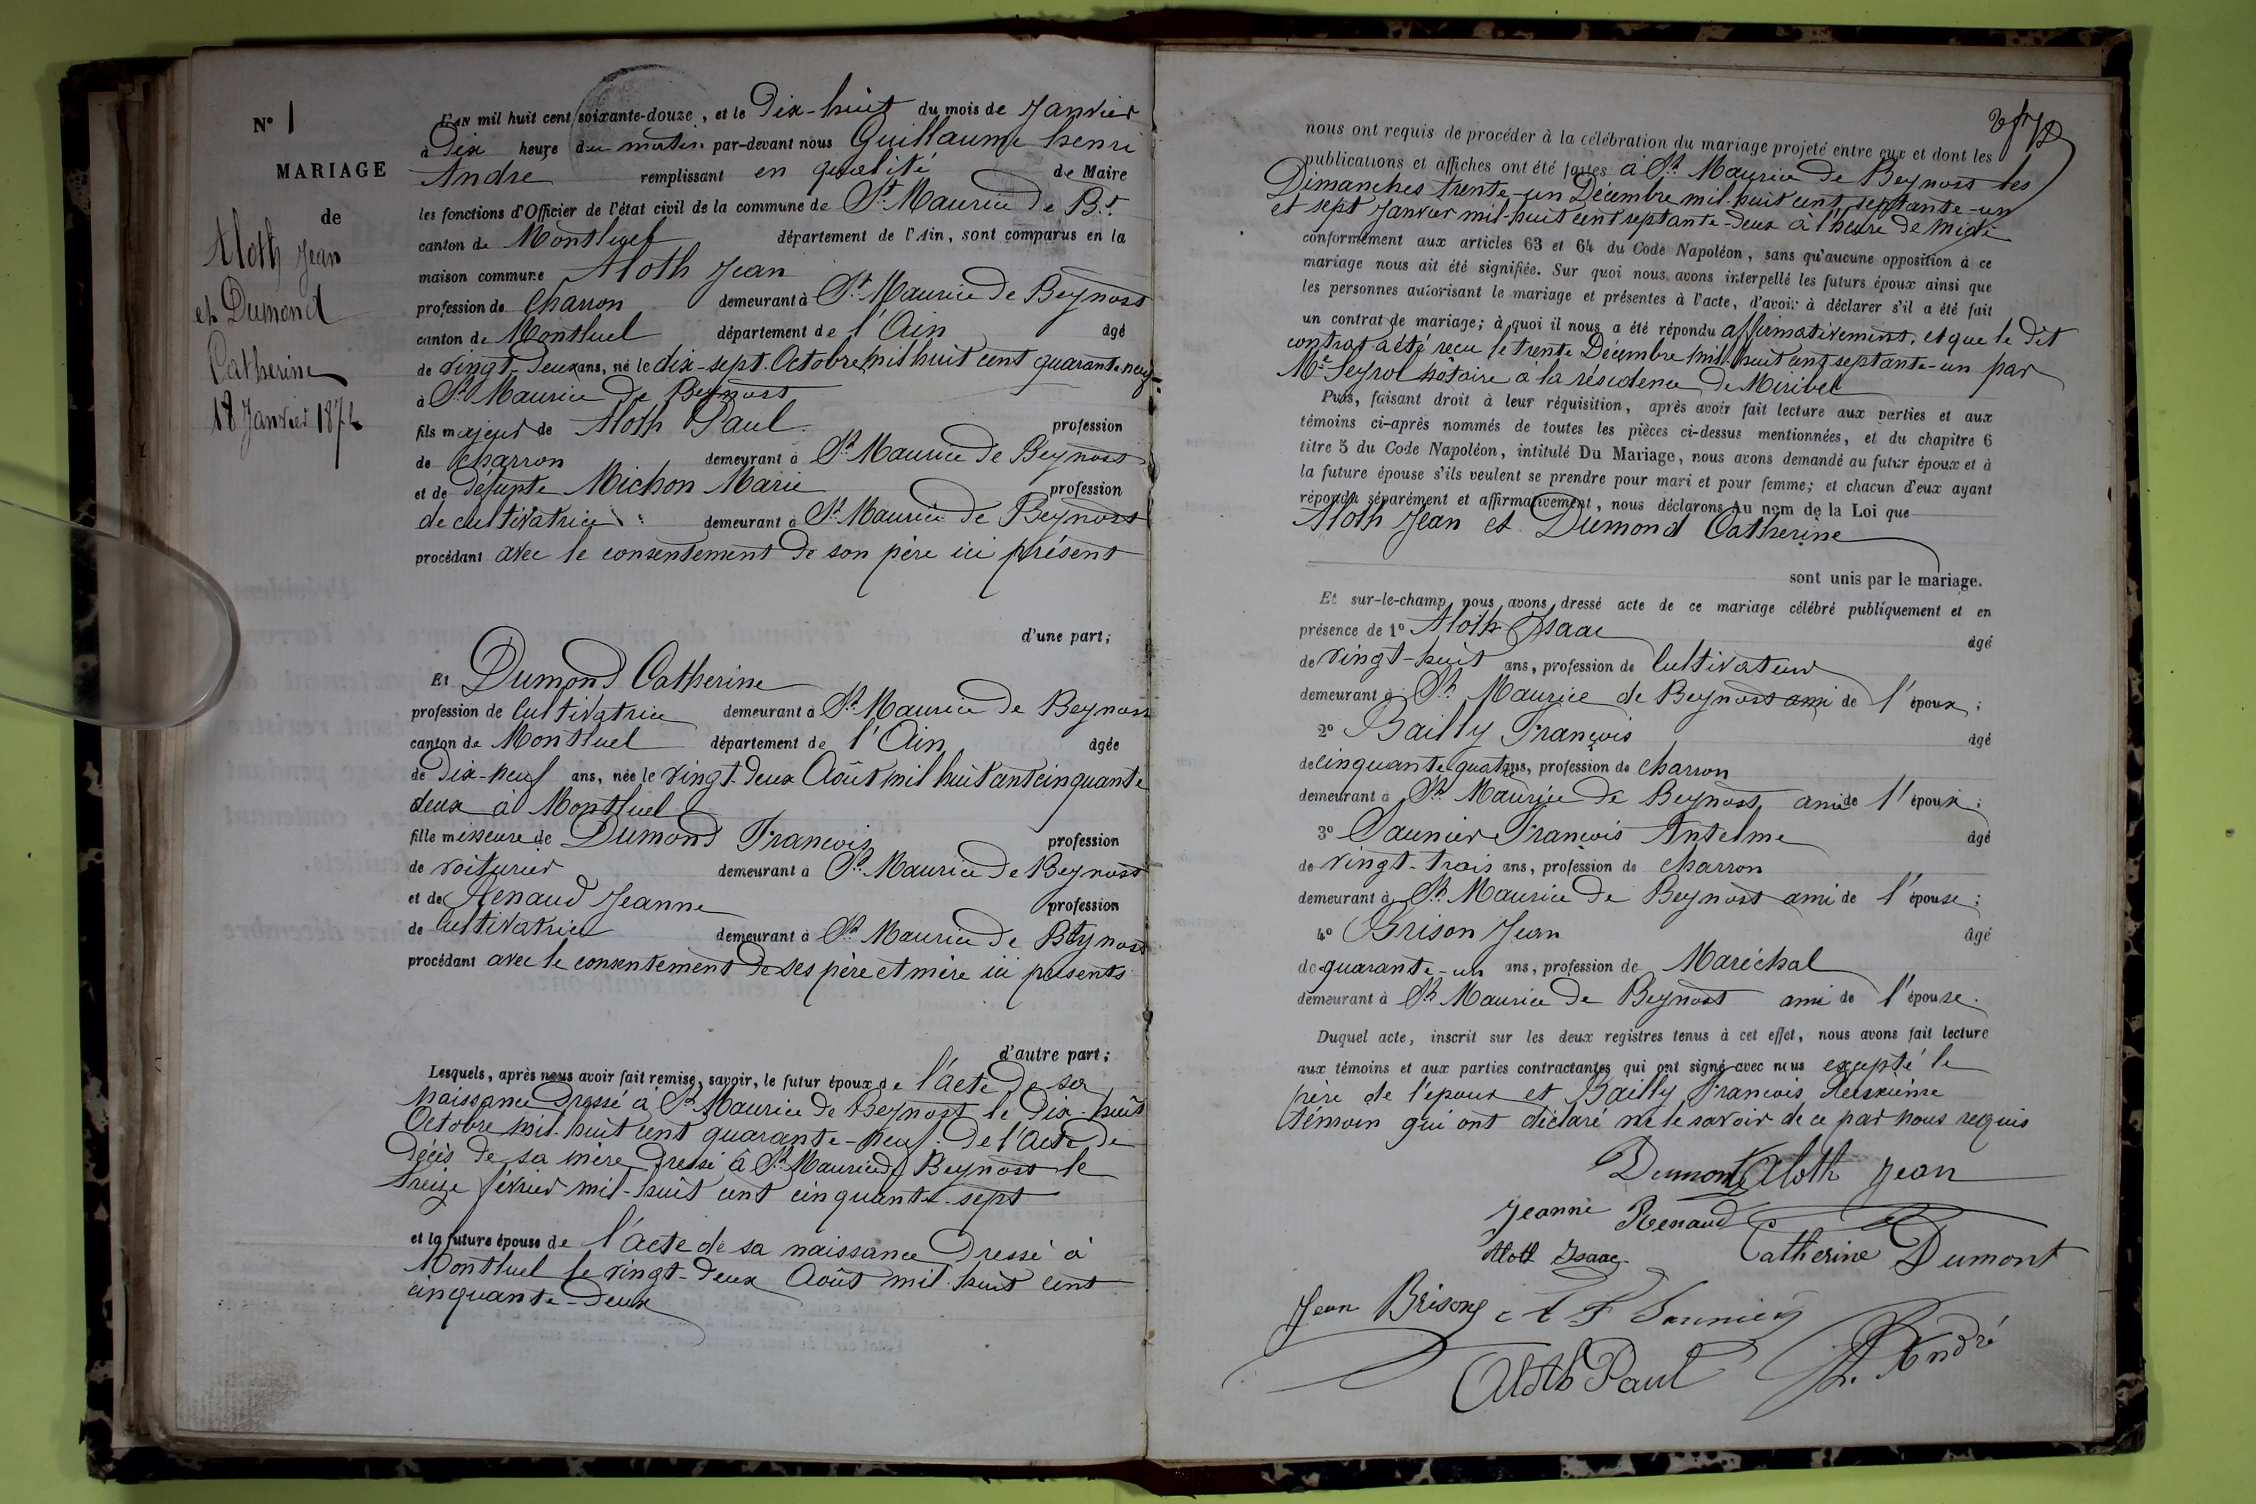 N° 1
MARIAGE
de
Aloth Jean
et Dumond
Catherine
18 Janvier 1872
L'AN mil huit cent soixante-douze, et le Dix-huit du mois de Janvier
à Dix heure du matin par-devant nous Guillaume henri
André remplissant en qualité de Maire
les fonctions d'Officier de l'état civil de la commune de St Maurice De B.t
canton de Montluel département de l'Ain, sont comparus en la
maison commune Aloth Jean
profession de Charron demeurant à St Maurice De Beynost
canton de Montluel département de l'Ain âgé
de vingt-Deux ans, né le dix-sept Octobre mil huit cent quarante-neuf
à St Maurice De Beynost
fils majeur de Aloth Paul profession
de Charron demeurant à St Maurice De Beynost
et de défunte Michon Marie profession
de cultivatrice demeurant à St Maurice De Beynost
procédant avec le consentement De son père ici présent
d'une part;
Et Dumond Catherine
profession de Cultivatrice demeurant à St Maurice De Beynost
canton de Montluel département de l'Ain âgée
de Dix-neuf ans, née le vingt-Deux Août mil huit cent cinquante
deux à Montluel
fille mineure de Dumond François profession
de voiturier demeurant à St Maurice De Beynost
et de Renaud Jeanne profession
de Cultivatrice demeurant à St Maurice De Beynost
procédant avec le consentement De ses père et mère ici présents
d'autre part;
Lesquels, après nous avoir fait remise, savoir, le futur époux de l'acte De sa
Naissance Dressé à St Maurice De Beynost le Dix-huit
Octobre mil-huit cent quarante-neuf. De l'Acte De
Décès De sa mère Dressé à St Maurice De Beynost le
treize février mil-huit cent cinquante-sept
et la future épouse de l'Acte de sa naissance Dressé à
Montluel le vingt-Deux Août mil-huit cent
cinquante-Deux
nous ont requis de procéder à la célébration du mariage projeté entre eux et dont les
publications et affiches ont été faites à St Maurice De Beynost les
Dimanches trente-un Décembre mil-huit cent septante-un
et sept Janvier mil-huit cent septante-Deux à l'heure De Midi
conformément aux articles 63 et 64 du Code Napoléon, sans qu'aucune opposition à ce
mariage nous ait été signifiée. Sur quoi nous avons interpellé les futurs époux ainsi que
les personnes autorisant le mariage et présentes à l'acte, d'avoir à déclarer s'il a été fait
un contrat de mariage; à quoi il nous a été répondu affirmativement, et que le Dit
contrat a été reçu le trente Décembre mil-huit cent septante-un par
Me Seyrol Notaire à la résidence De Miribel
Puis, faisant droit à leur réquisition, après avoir fait lecture aux parties et aux
témoins ci-après nommés de toutes les pièces ci-dessus mentionnées, et du chapitre 6
titre 5 du Code Napoléon, intitulé Du Mariage, nous avons demandé au futur époux et à
la future épouse s'ils veulent se prendre pour mari et pour femme; et chacun d'eux ayant
répondu séparément et affirmativement, nous déclarons Au nom de la Loi que
Aloth Jean et Dumond Catherine
sont unis par le mariage.
Et sur-le-champ nous avons dressé acte de ce mariage célébré publiquement et en
présence de 1° Aloth Isaac âgé
de vingt-huit ans, profession de Cultivateur
demeurant à St Maurice de Beynost ami de l'époux;
2° Bailly François âgé
de cinquante-quatre ans, profession de charron
demeurant à St Maurice De Beynost ami de l'époux;
3° Saunier François Antelme âgé
de vingt-trois ans, profession de charron
demeurant à St Maurice De Beynost ami de l'épouse;
4° Brison Jean âgé
de quarante-un ans, profession de Maréchal
demeurant à St Maurice De Beynost ami de l'épouse.
Duquel acte, inscrit sur les deux registres tenus à cet effet, nous avons fait lecture
aux témoins et aux parties contractantes qui ont signé avec nous excepté le
père de l'époux et Bailly François Deuxième
témoin qui ont déclaré ne le savoir de ce par nous requis
Dumont Aloth Jean
Jeanne Renaud
Aloth Isaac Catherine Dumont
Jean Brison F Saunier
Aloth Paul h. André